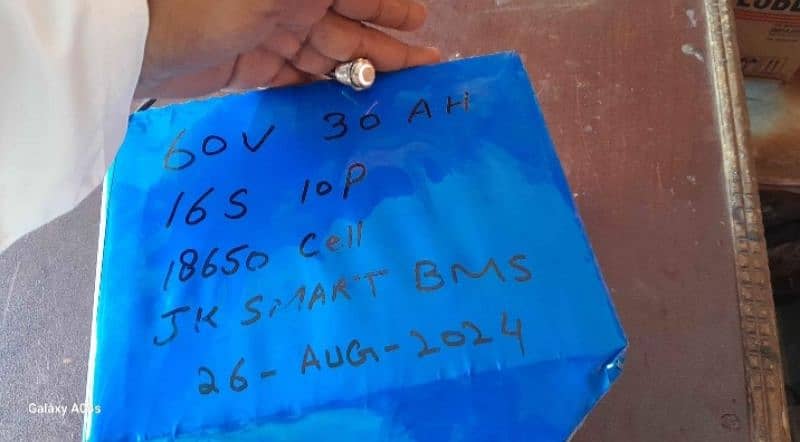 60V 30 AH
16S 10P
18650 Cell
JK SMART BMS
26-AUG-2024